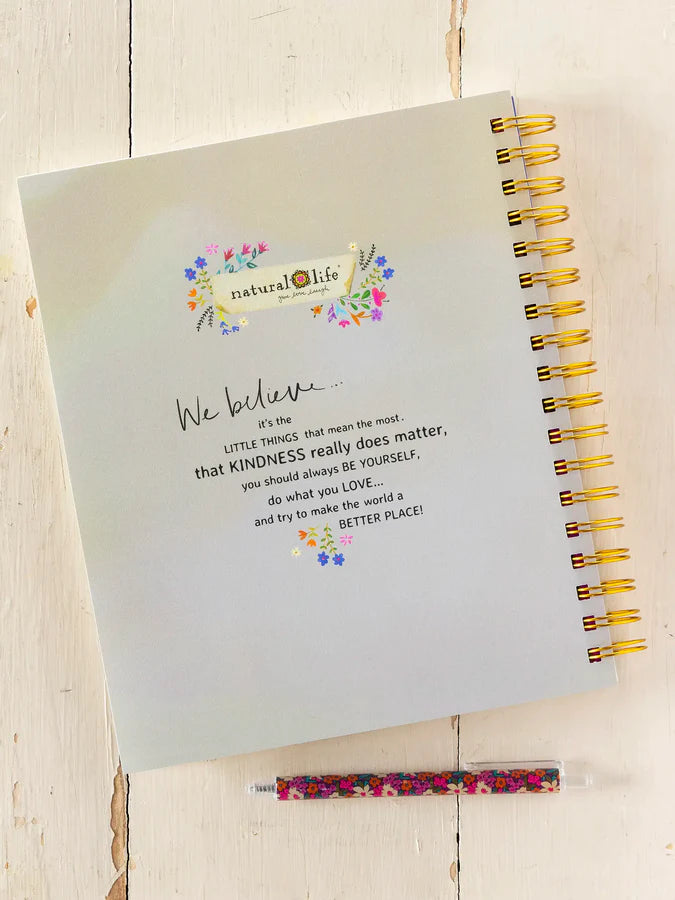 natural life®
give love laugh
We believe...
it's the
LITTLE THINGS that mean the most.
that KINDNESS really does matter,
you should always BE YOURSELF,
do what you LOVE...
and try to make the world a
BETTER PLACE!